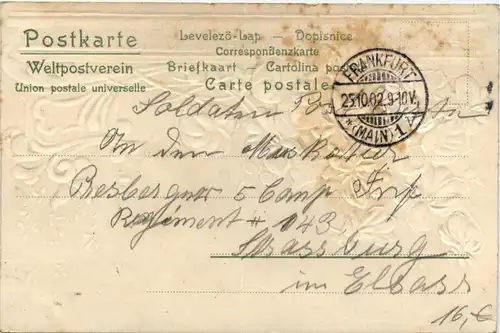 Postkarte
Levelező-Lap — Dopisnice
Correspondenzkarte
Weltpostverein
Briefkaart — Cartolina post
Union postale universelle
Carte postale
FRANKFURT
25.10.02.9-10V.
* (MAIN) 1
Soldaten
An den Musketier
5 Comp Inf
Regiment # 143
Strassburg
im Elsass
16,- €